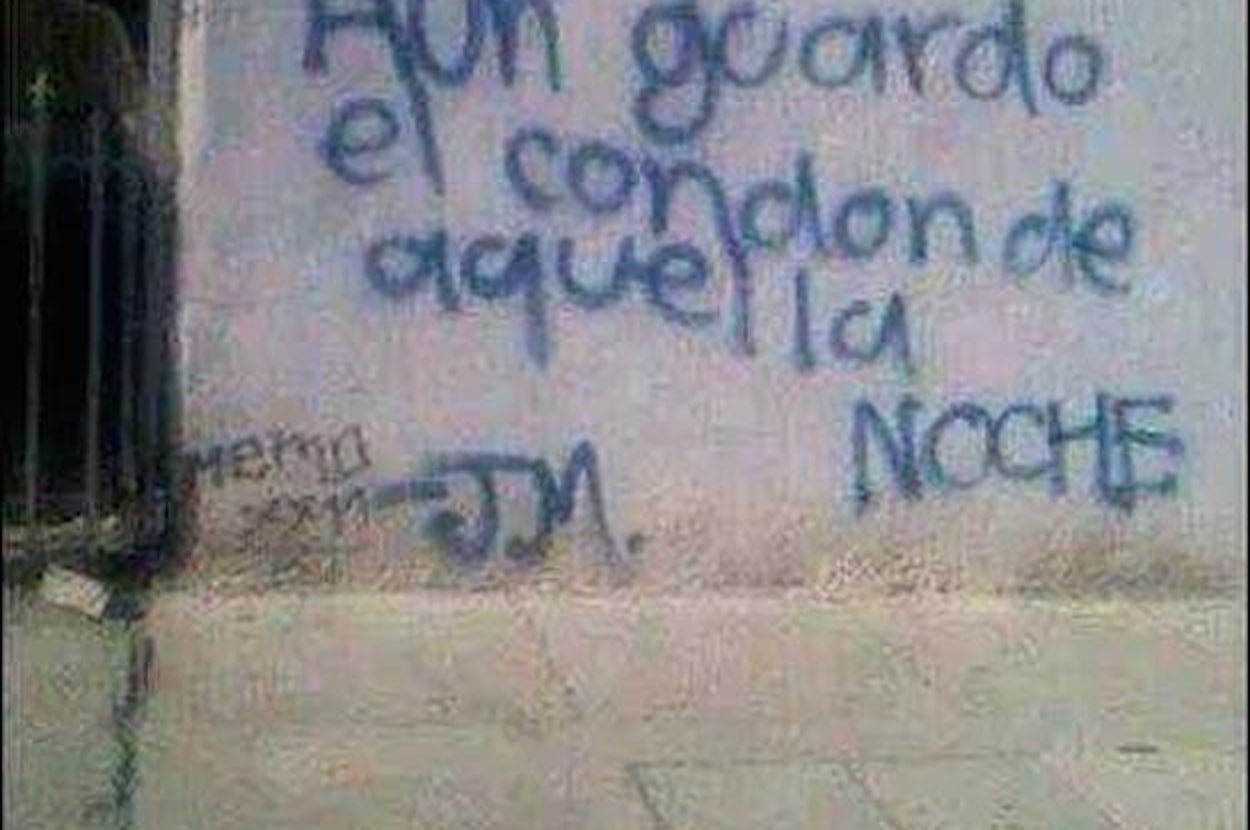 Aun guardo
el condon de
aquella
NOCHE
JM.